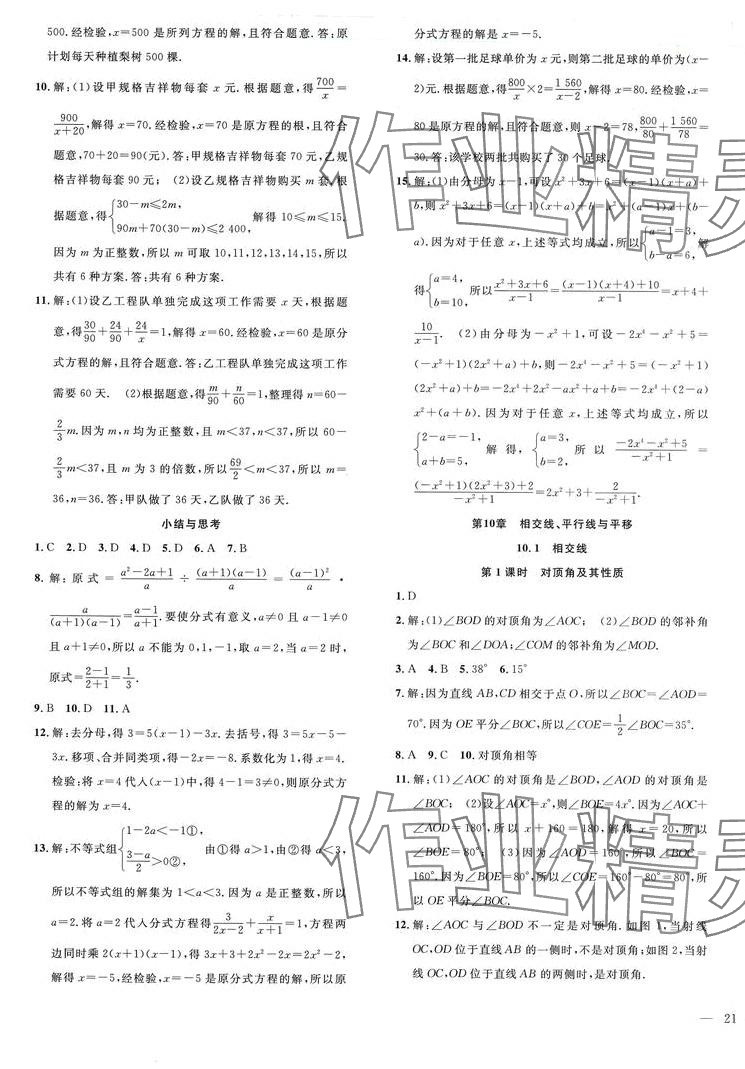 500.经检验,x=500 是所列方程的解,且符合题意.答:原
计划每天种植梨树 500 棵.
10.解:(1)设甲规格吉祥物每套 x 元.根据题意,得700/x=
900/(x+20),解得 x=70.经检验,x=70 是原方程的根,且符合
题意,70+20=90(元).答:甲规格吉祥物每套 70 元,乙规
格吉祥物每套 90 元; (2)设乙规格吉祥物购买 m 套,根
据题意,得{30-m≤2m, 90m+70(30-m)≤2 400, 解得 10≤m≤15.
因为 m 为正整数,所以 m 可取 10,11,12,13,14,15,所以
共有 6 种方案.答:共有 6 种方案.
11.解:(1)设乙工程队单独完成这项工作需要 x 天,根据题
意,得30/90+24/90+24/x=1,解得 x=60.经检验,x=60 是原分
式方程的解,且符合题意.答:乙工程队单独完成这项工作
需要 60 天. (2)根据题意,得m/90+n/60=1,整理得 n=60-
2/3m.因为 m,n 均为正整数,且 m<37,n<37,所以 60-
2/3m<37,且 m 为 3 的倍数,所以69/2<m<37,所以 m=
36,n=36.答:甲队做了 36 天,乙队做了 36 天.
小结与思考
1.C 2.D 3.D 4.D 5.D 6.A 7.B
8.解:原式=(a²-2a+1)/a÷(a+1)(a-1)/a=(a-1)²/a·
a/(a+1)(a-1)=(a-1)/(a+1).要使分式有意义,a≠0 且 a-1≠0
且 a+1≠0,所以 a 不能为 0,1,-1,取 a=2,当 a=2 时,
原式=(2-1)/(2+1)=1/3.
9.B 10.D 11.A
12.解:去分母,得 3=5(x-1)-3x.去括号,得 3=5x-5-
3x.移项、合并同类项,得-2x=-8.系数化为 1,得 x=4.
检验:将 x=4 代入(x-1)中,得 4-1=3≠0,则原分式方
程的解为 x=4.
13.解:不等式组{1-2a<-1①, (3-a)/2>0②, 由①得 a>1,由②得 a<3,
所以不等式组的解集为 1<a<3.因为 a 是整数,所以
a=2.将 a=2 代入分式方程得3/(2x-2)+x/(x+1)=1,方程两
边同时乘 2(x+1)(x-1),得 3x+3+2x²-2x=2x²-2,
解得 x=-5,经检验,x=-5 是原分式方程的解,所以原
分式方程的解是 x=-5.
14.解:设第一批足球单价为 x 元,则第二批足球的单价为(x-
2)元.根据题意,得800/x×2=1 560/(x-2),解得 x=80.经检验,x=
80是原方程的解,且符合题意,则 x-2=78,800/80+1 560/78=
30.答:该学校两批共购买了 30 个足球.
15.解:(1)由分母为 x-1,可设 x²+3x+6=(x-1)(x+a)+
b,则 x²+3x+6=(x-1)(x+a)+b=x²+(a-1)x+(b-
a).因为对于任意 x,上述等式均成立,所以{a-1=3, b-a=6, 解
得{a=4, b=10, 所以(x²+3x+6)/(x-1)=((x-1)(x+4)+10)/(x-1)=x+4+
10/(x-1). (2)由分母为-x²+1,可设-2x⁴-x²+5=
(-x²+1)(2x²+a)+b,则-2x⁴-x²+5=(-x²+1)
(2x²+a)+b=-2x⁴+2x²-ax²+a+b=-2x⁴+(2-a)
x²+(a+b).因为对于任意 x,上述等式均成立,所以
{2-a=-1, a+b=5, 解得,{a=3, b=2, 所以(-2x⁴-x²+5)/(-x²+1)=
((-x²+1)(2x²+3)+2)/(-x²+1)=2x²+3+2/(-x²+1).
第10章 相交线、平行线与平移
10.1 相交线
第 1 课时 对顶角及其性质
1.D
2.解:(1)∠BOD 的对顶角为∠AOC; (2)∠BOD 的邻补角
为∠BOC 和∠DOA;∠COM 的邻补角为∠MOD.
3.A 4.B 5.38° 6.15°
7.解:因为直线 AB,CD 相交于点 O,所以∠BOC=∠AOD=
70°.因为 OE 平分∠BOC,所以∠COE=1/2∠BOC=35°.
8.A 9.C 10.对顶角相等
11.解:(1)∠AOC 的对顶角是∠BOD,∠AOD 的对顶角是
∠BOC; (2)设∠AOC=x°,则∠BOE=4x°.因为∠AOC+
∠AOD=180°,所以 x+160=180,解得 x=20.所以
∠BOE=80°; (3)因为∠AOD=160°,所以∠BOC=
160°.因为∠BOE=80°,所以∠COE=160°-80°=80°,所
以 OE 平分∠BOC.
12.解:∠AOC 与∠BOD 不一定是对顶角.如图 1,当射线
OC,OD 位于直线 AB 的一侧时,不是对顶角;如图 2,当射
线 OC,OD 位于直线 AB 的两侧时,是对顶角.
— 21
作业精灵
作业精灵